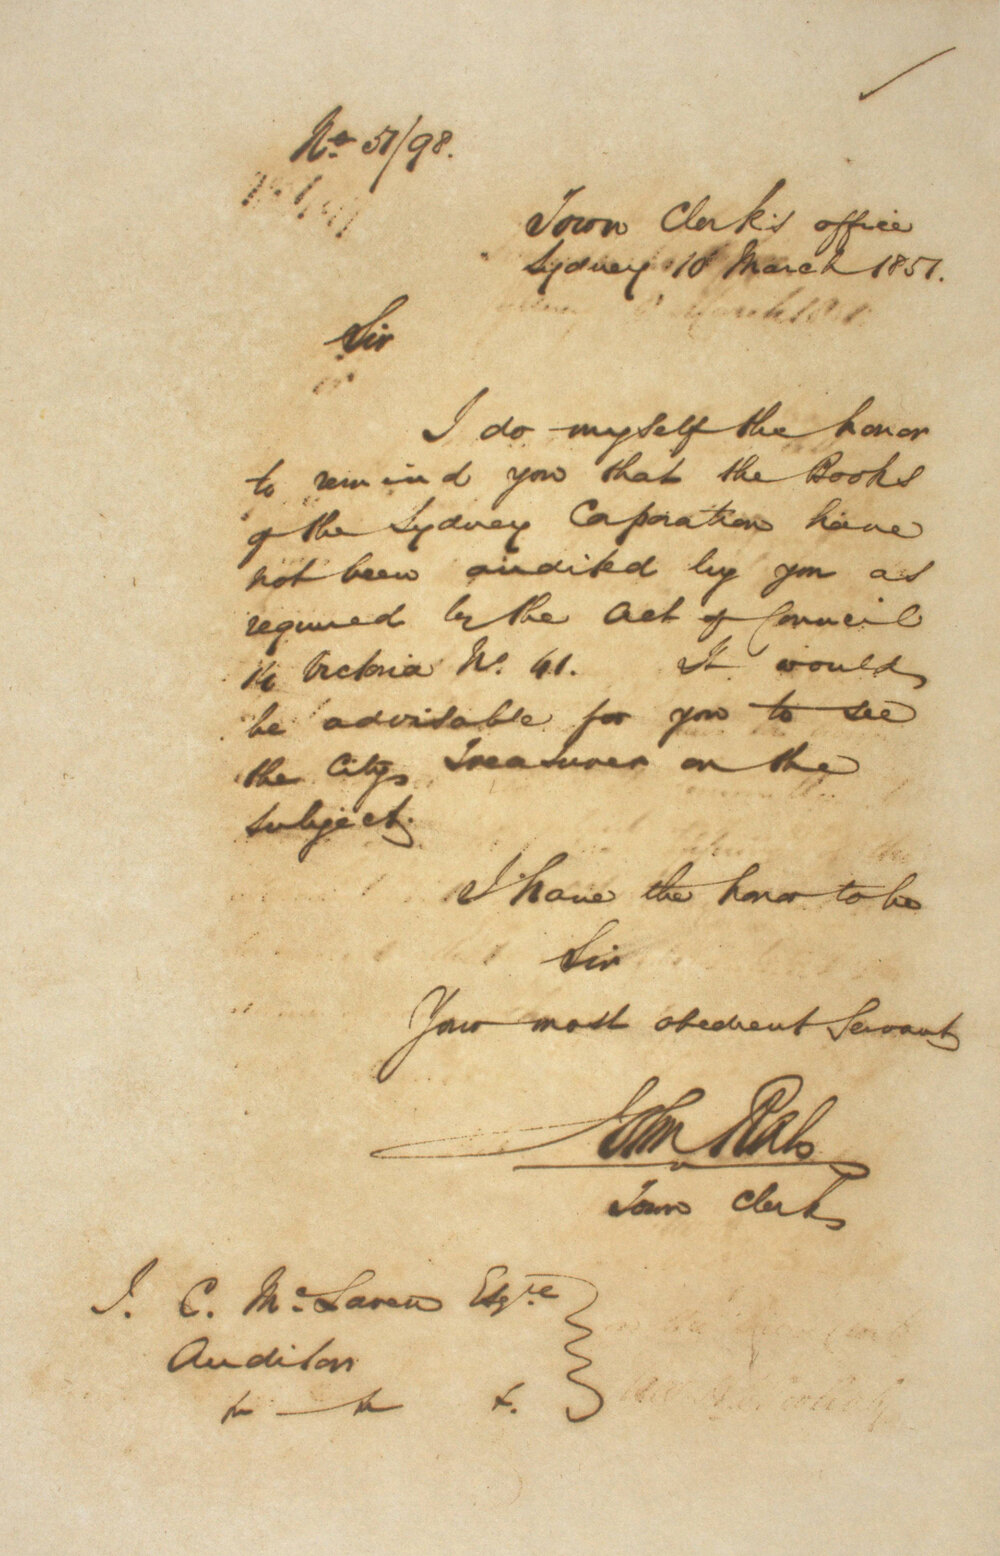 No. 51/98.
Town Clerk's office
Sydney 10 March 1851.
Sir
I do myself the honor
to remind you that the Books
of the Sydney Corporation have
not been audited by you as
required by the Act of Council
14 Victoria No. 41. It would
be advisable for you to see
the City Treasurer on the
subject.
I have the honor to be
Sir
Your most obedient Servant
John Rae
Town Clerk
J. C. McLaren Esqre
Auditor